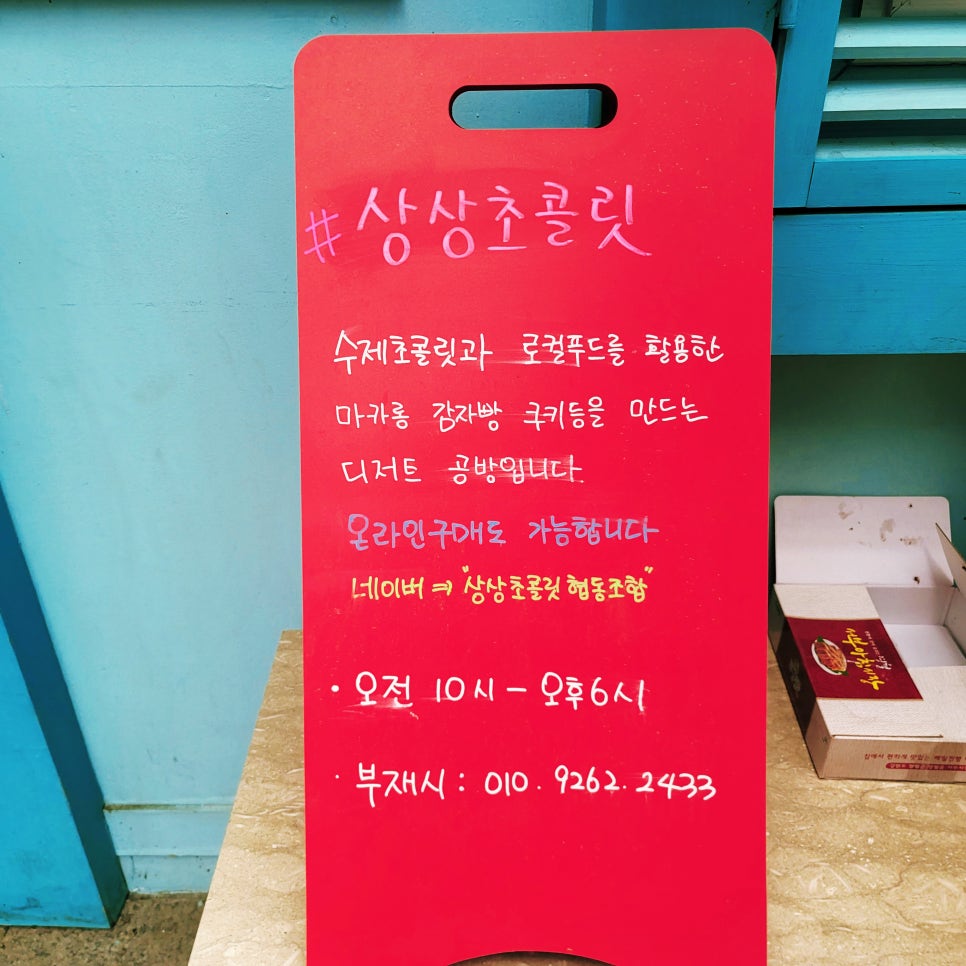 #상상초콜릿
수제초콜릿과 로컬푸드를 활용한
마카롱 감자빵 쿠키등을 만드는
디저트 공방입니다
온라인구매도 가능합니다
네이버 ⇒ "상상초콜릿협동조합"
· 오전 10시 - 오후6시
· 부재시 : 010. 9262. 2433